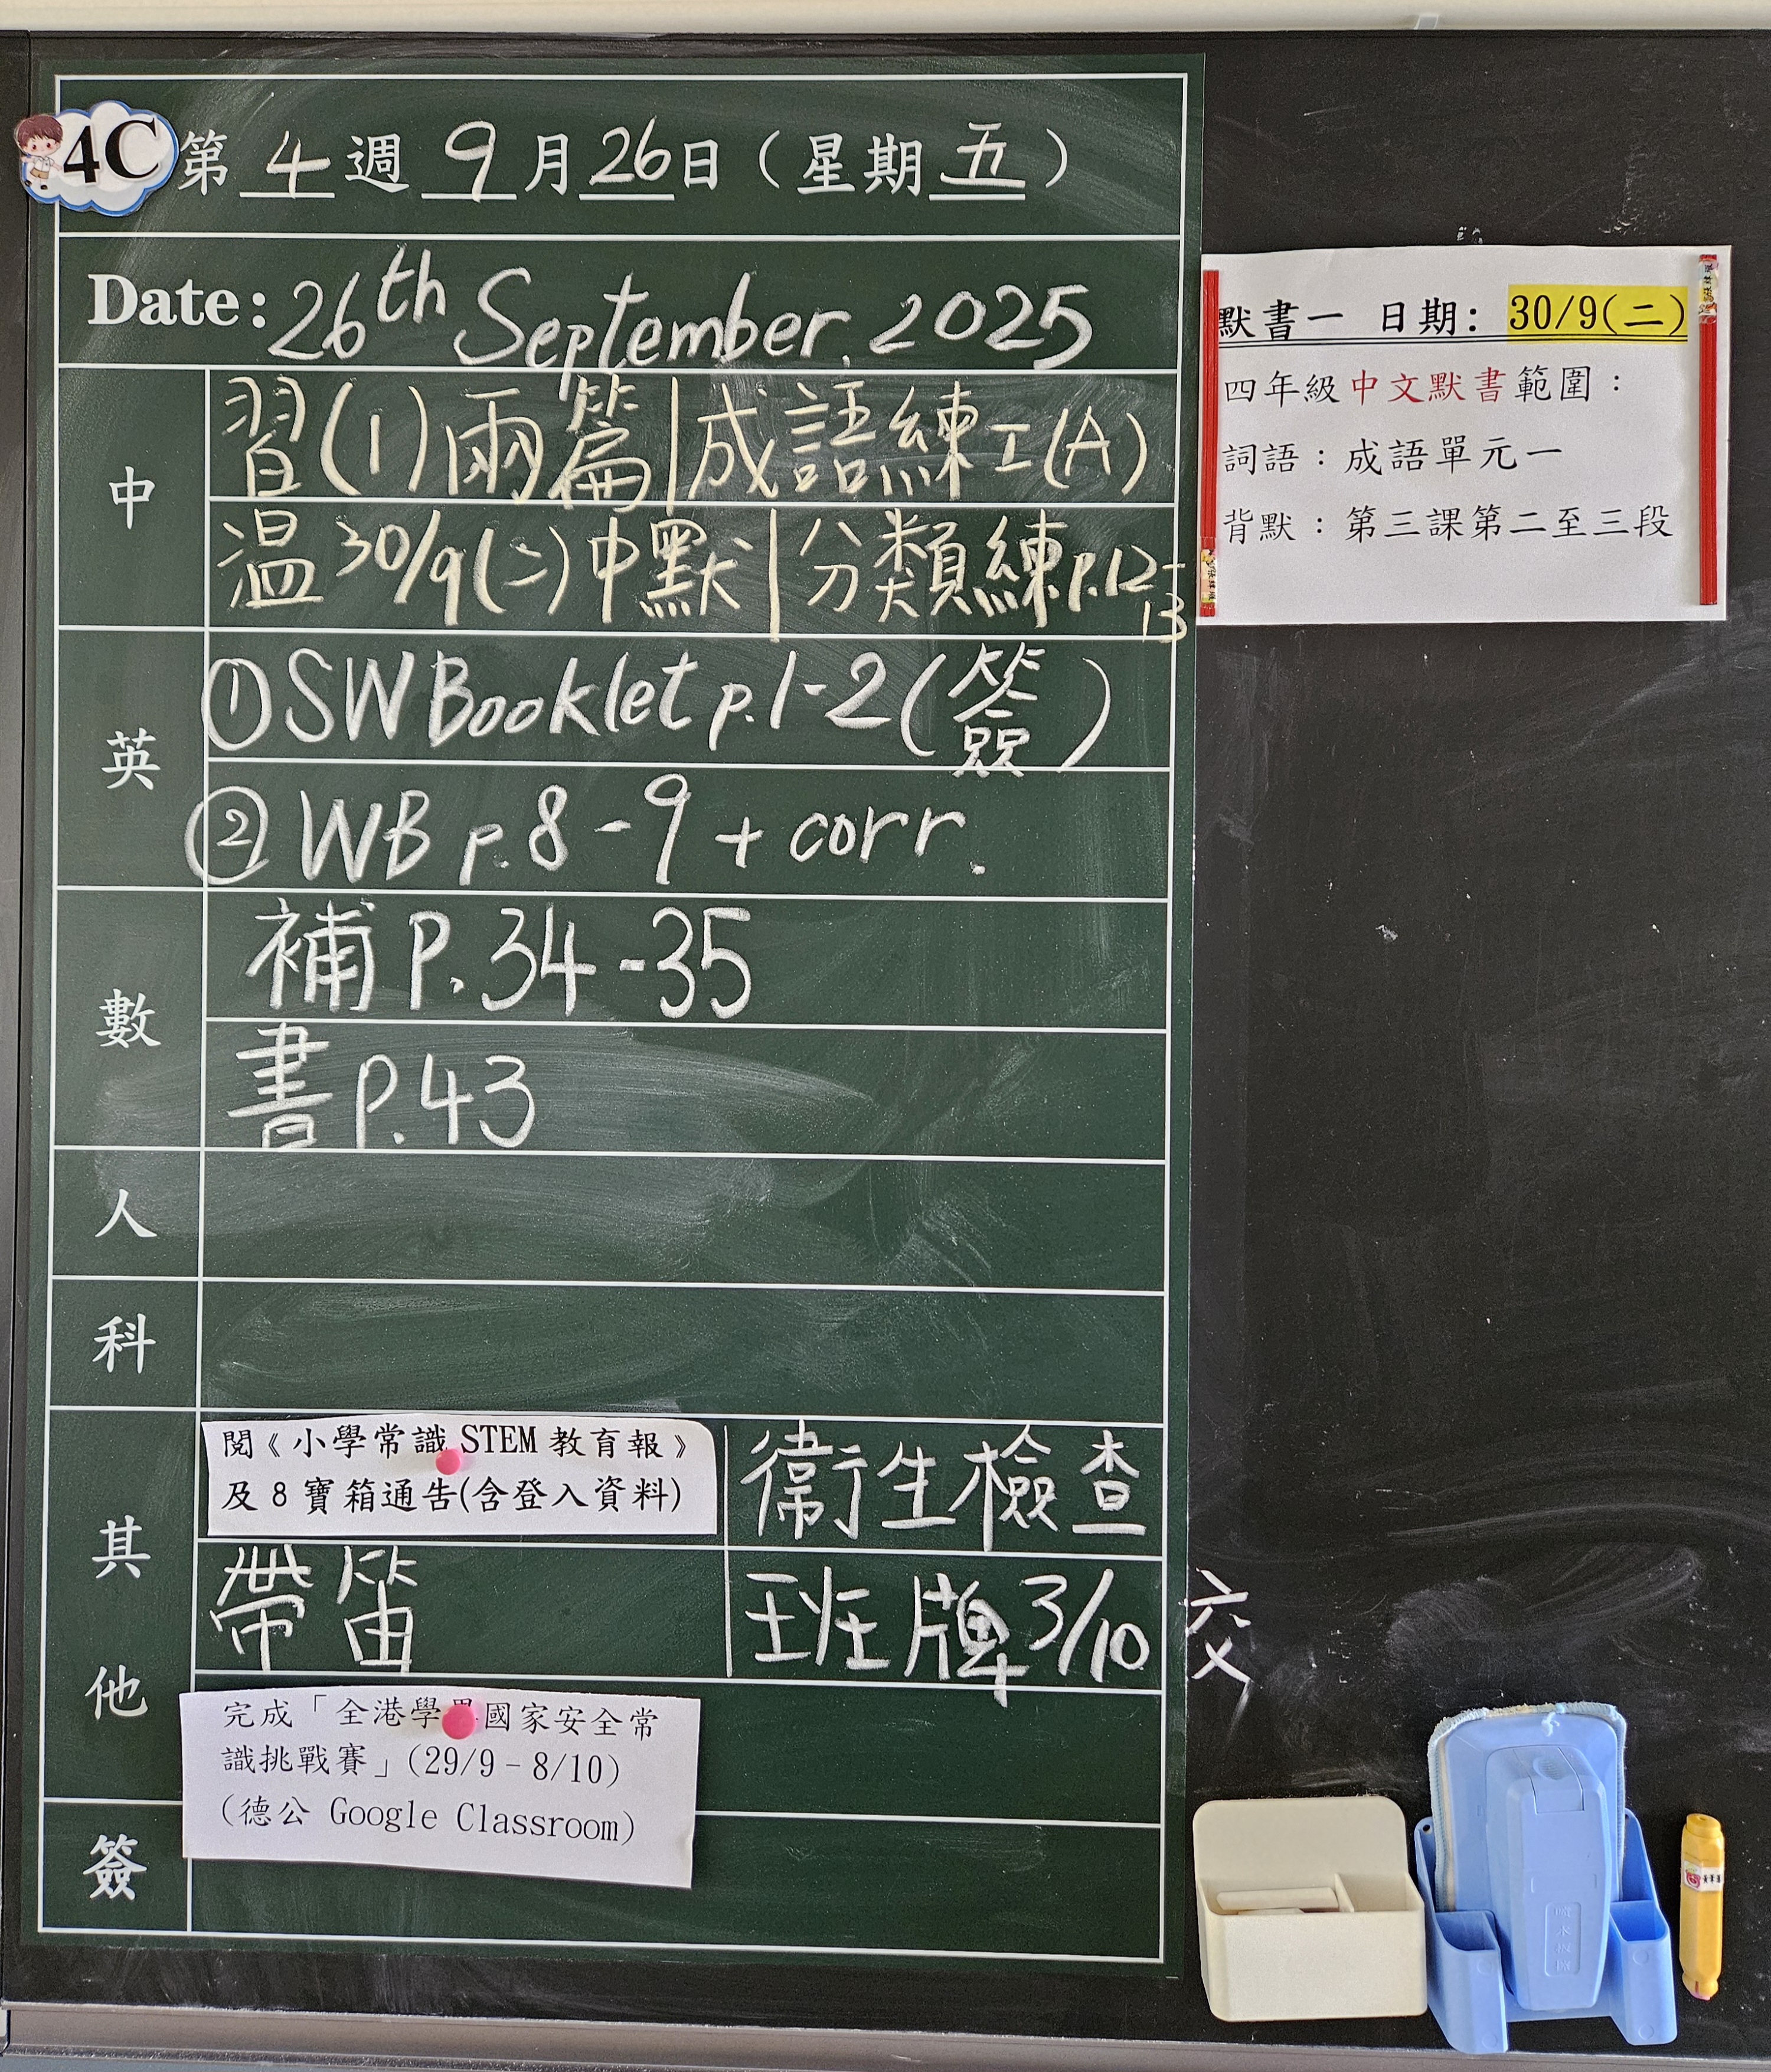 4C 第 4 週 9 月 26 日 ( 星期 五 )
Date: 26th September, 2025
中
習(1)兩篇|成語練工(A)
溫30/9(二)中默|分類練p.12-13
英
①SW Booklet p.1-2(簽)
②WB p.8-9 + corr.
數
補P.34-35
書P.43
人
科
其他
閱《小學常識 STEM 教育報》
及 8 寶箱通告(含登入資料)
衞生檢查
帶笛
班牌3/10交
完成「全港學界國家安全常
識挑戰賽」(29/9－8/10)
(德公 Google Classroom)
簽
默書一 日期: 30/9(二)
四年級中文默書範圍：
詞語：成語單元一
背默：第三課第二至三段